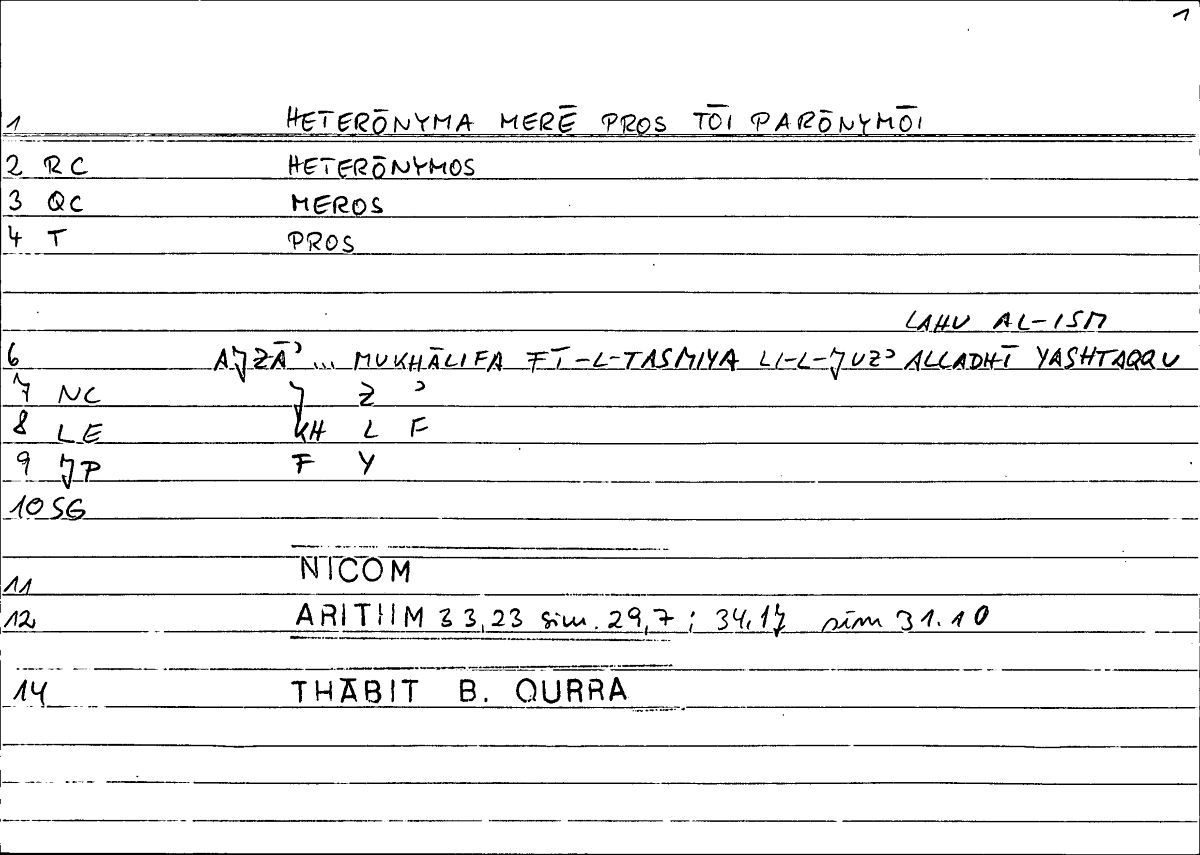 1
1 HETERŌNYMA MERĒ PROS TŌI PARŌNYMŌI
2 RC HETERŌNYMOS
3 QC MEROS
4 T PROS
LAHU AL-ISM
6 AJZĀʾ ... MUKHĀLIFA FĪ-L-TASMIYA LI-L-JUZʾ ALLADHĪ YASHTAQQU
7 NC J Z ʾ
8 LE KH L F
9 JP F Y
10 SG
11 NICOM
12 ARITHM 33,23 sim. 29,7 ; 34.17 sim 31.10
14 THĀBIT B. QURRA